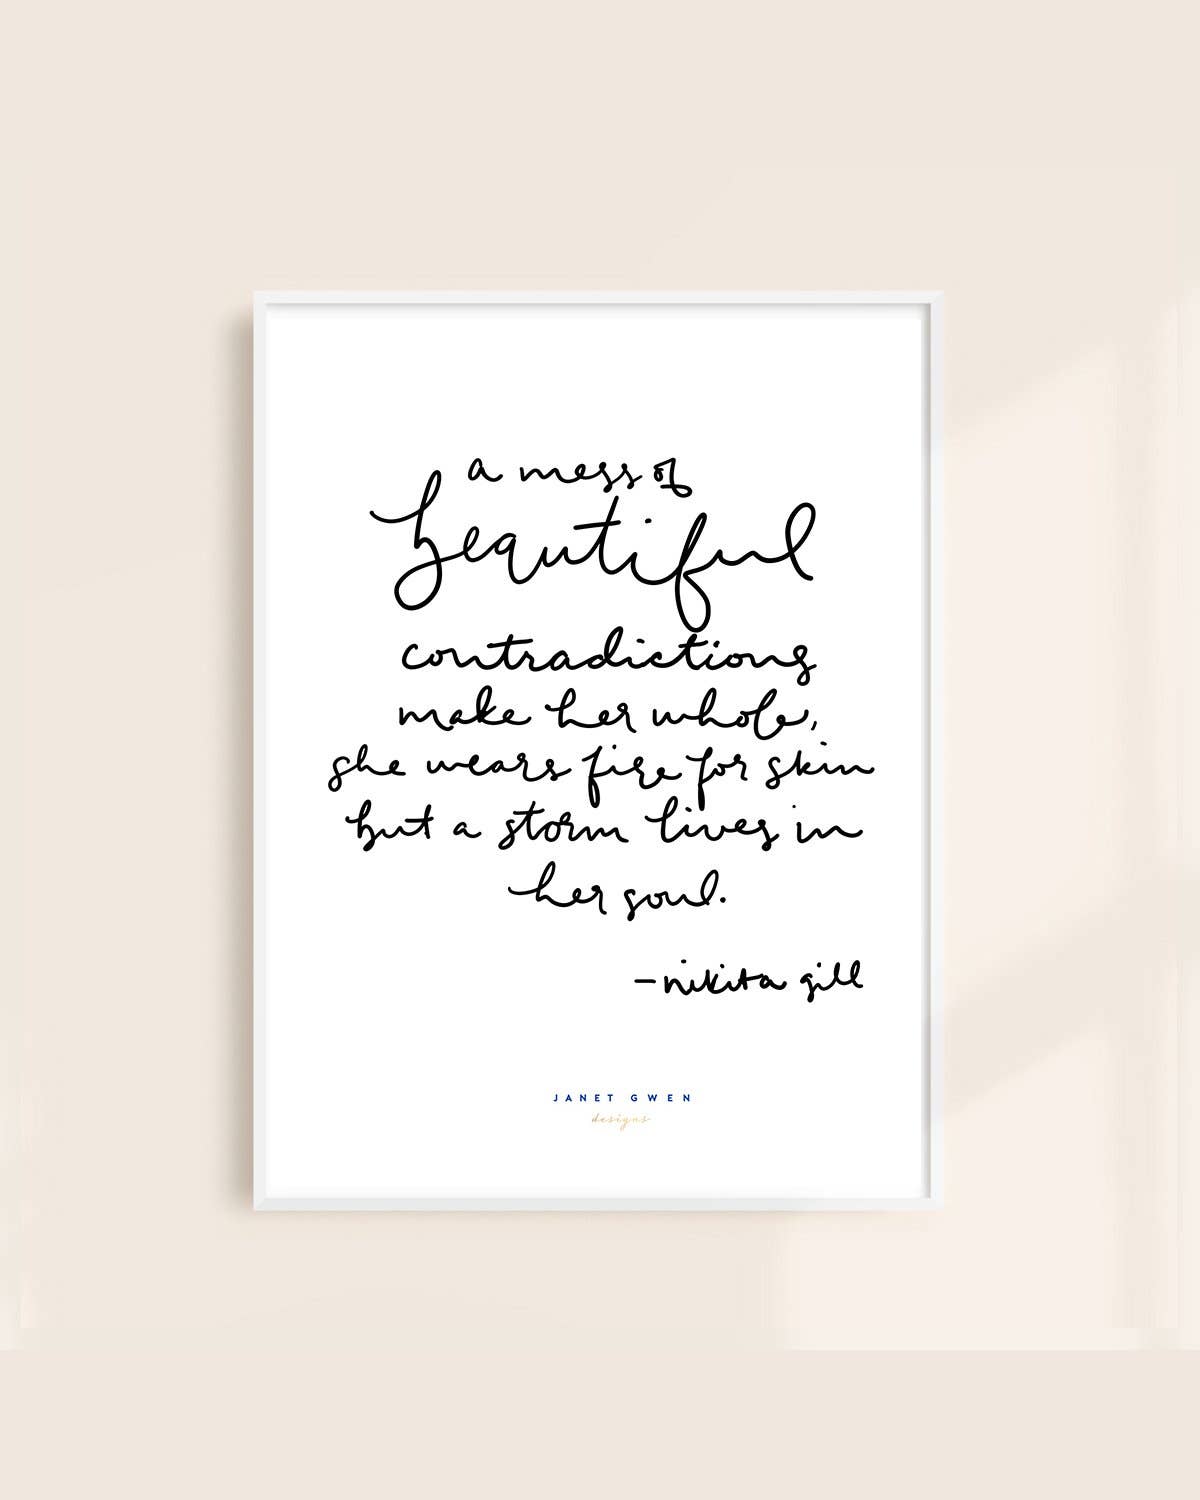 a mess of
beautiful
contradictions
make her whole,
she wears fire for skin
but a storm lives in
her soul.
—nikita gill
JANET GWEN
designs